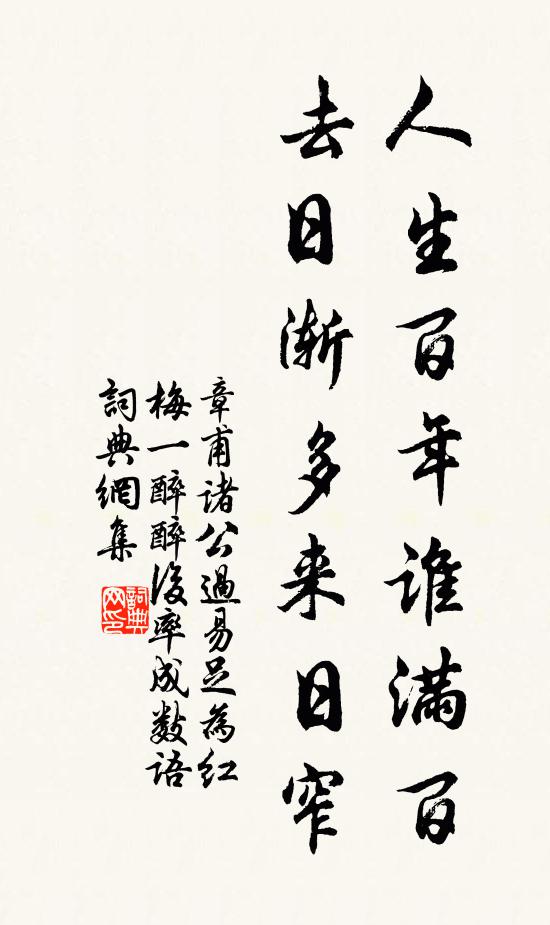 人生百年谁满百
去日渐多来日窄
章甫诸公過易足為红
梅一醉醉後率成数语
詞典網集
詞典
网印